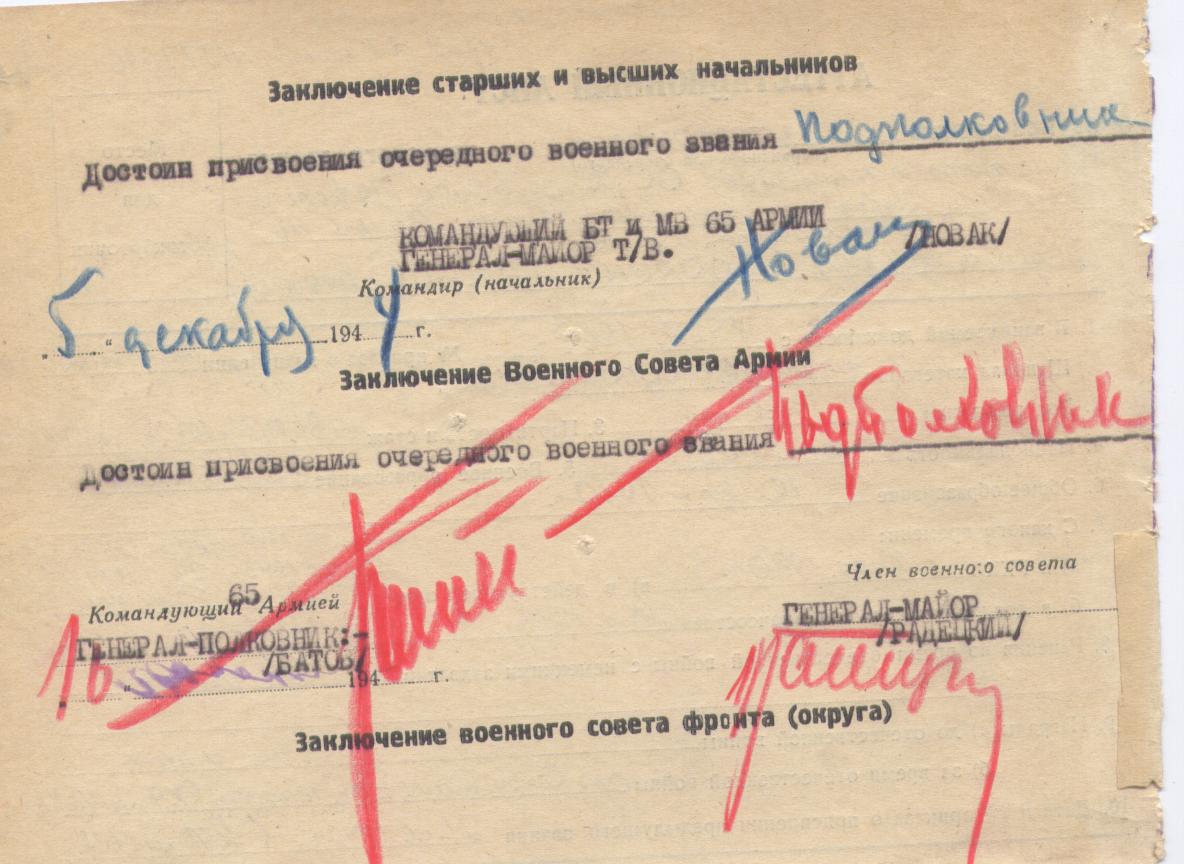 Заключение старших и высших начальников
Достоин присвоения очередного военного звания подполковник
КОМАНДУЮЩИЙ БТ и МВ 65 АРМИИ
ГЕНЕРАЛ-МАЙОР Т/В. Новак /НОВАК/
Командир (начальник)
„5“ декабря 1944 г.
Заключение Военного Совета Армии
Достоин присвоения очередного военного звания подполковник
Член военного совета
Командующий 65 Армией
ГЕНЕРАЛ-МАЙОР
ГЕНЕРАЛ-ПОЛКОВНИК:-
/РАДЕЦКИЙ/
/БАТОВ/
„16“ 194 г.
Заключение военного совета фронта (округа)